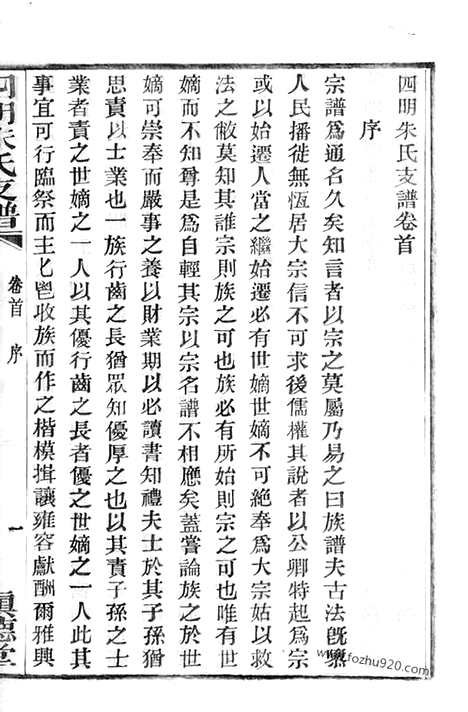 四明朱氏支譜卷首
序
宗譜爲通名久矣知言者以宗之莫屬乃易之曰族譜夫古法旣隳
人民播徙無恆居大宗信不可求後儒權其說者以公卿特起爲宗
或以始遷人當之繼始遷必有世嫡世嫡不可絶奉爲大宗姑以救
法之敝莫知其誰宗則族之可也族必有所始則宗之可也唯有世
嫡而不知尊是爲自輕其宗以宗名譜不相應矣蓋嘗論族之於世
嫡可崇奉而嚴事之養以財業期以必讀書知禮夫士於其子孫猶
思責以士業也一族行齒之長猶眾知優厚之也以其責子孫之士
業者責之世嫡之一人以其優行齒之長者優之世嫡之一人此其
事宜可行臨祭而主匕鬯收族而作之楷模揖讓雍容獻酬爾雅興
四明朱氏支譜
卷首
序
一
www.fozhu920.com